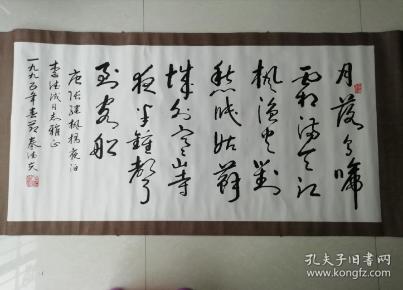 月落乌啼
霜满天江
枫渔火对
愁眠姑苏
城外寒山寺
夜半钟声
到客船
唐张继枫桥夜泊
李法成同志雅正
一九九五年春节秦
孔夫子旧书网
www.kongfz.com